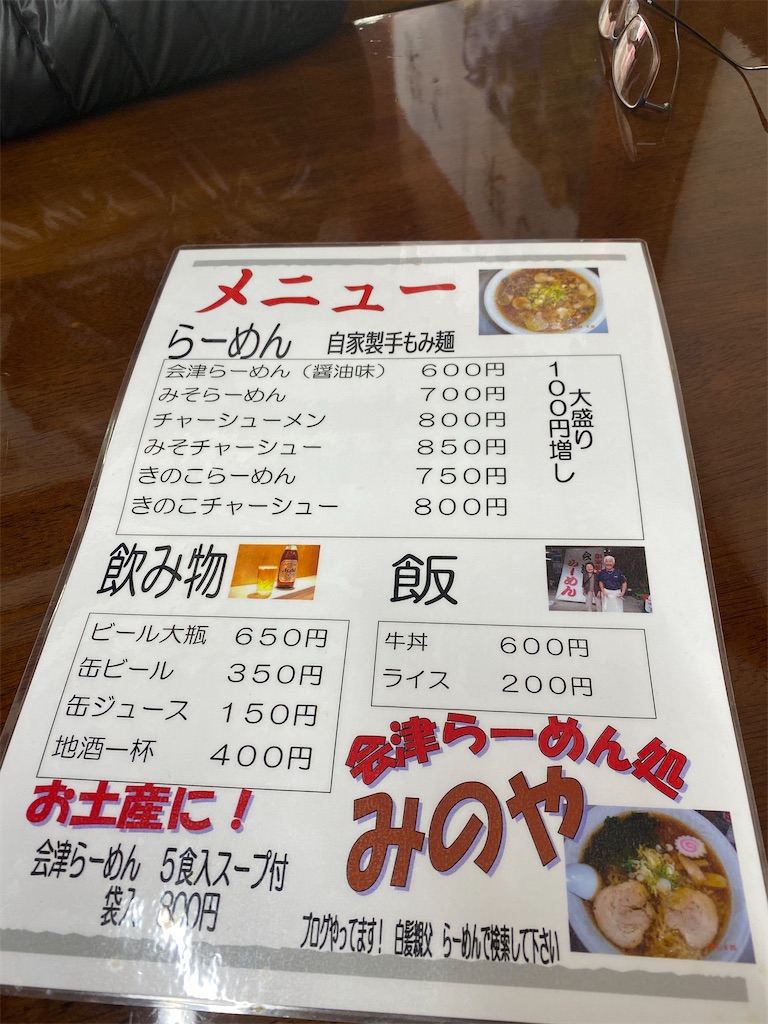 メニュー
らーめん 自家製手もみ麺
会津らーめん（醤油味） 600円
みそらーめん 700円
チャーシューメン 800円
みそチャーシュー 850円
きのこらーめん 750円
きのこチャーシュー 800円
大盛り
100円増し
飲み物
ビール大瓶 650円
缶ビール 350円
缶ジュース 150円
地酒一杯 400円
飯
牛丼 600円
ライス 200円
お土産に！
会津らーめん 5食入スープ付
袋入 800円
会津らーめん処
みのや
ブログやってます！ 白髪親父 らーめんで検索して下さい